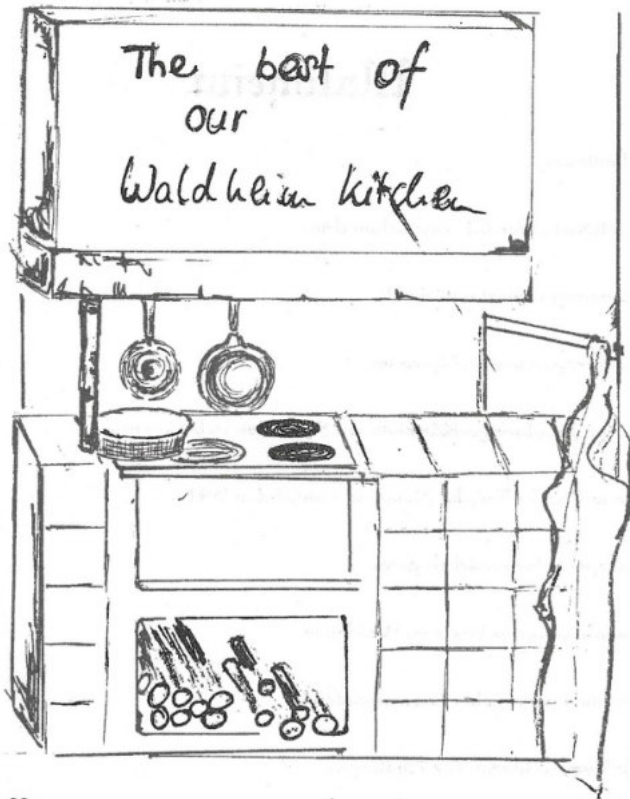 The best of
our
Waldheim kitchen